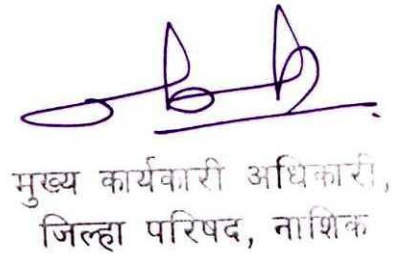 मुख्य कार्यकारी अधिकारी,
जिल्हा परिषद, नाशिक